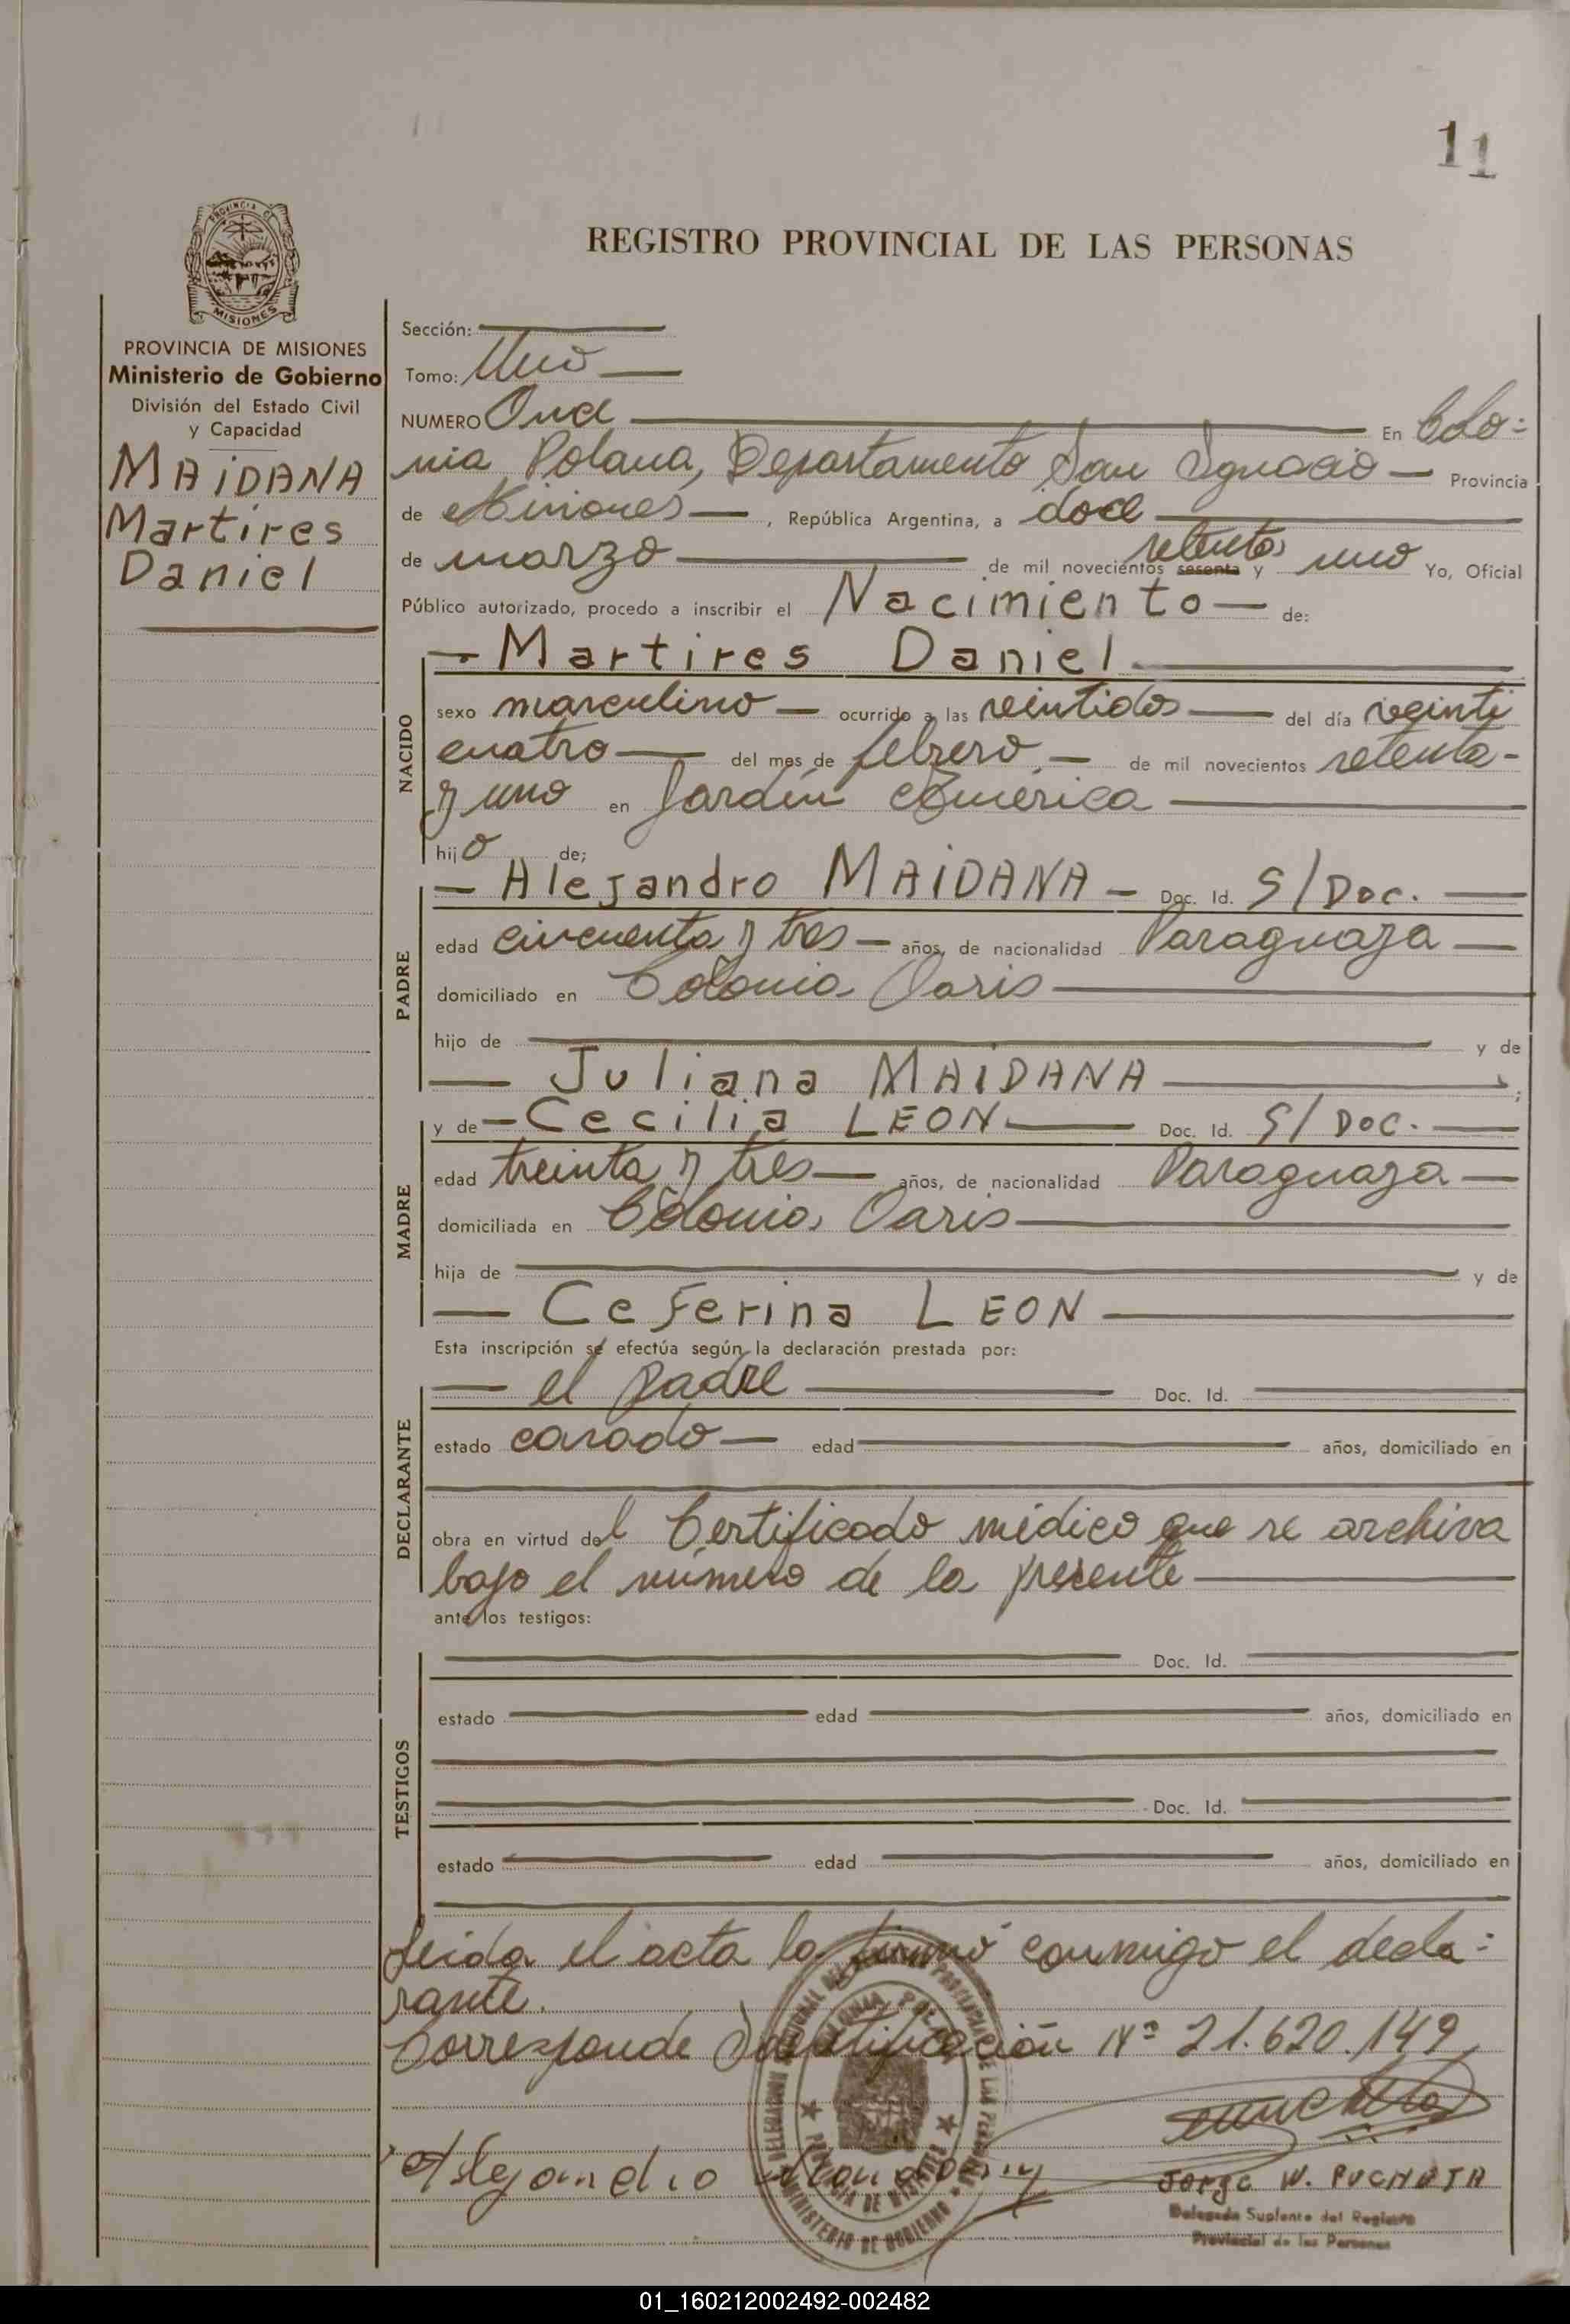 11
PROVINCIA DE
MISIONES
REGISTRO PROVINCIAL DE LAS PERSONAS
PROVINCIA DE MISIONES
Ministerio de Gobierno
División del Estado Civil
y Capacidad
MAIDANA
Martires
Daniel
Sección:
Tomo: Uno
NUMERO Once En Colo=
nia Polana, Departamento San Ignacio Provincia
de Misiones, República Argentina, a doce
de marzo de mil novecientos sesenta setenta y uno Yo, Oficial
Público autorizado, procedo a inscribir el Nacimiento de:
NACIDO
Martires Daniel
sexo masculino ocurrido a las veintidos del día veinti
cuatro del mes de febrero de mil novecientos setenta-
y uno en Jardín América
hijo de;
PADRE
Alejandro MAIDANA Doc. Id. S/Doc.
edad cincuenta y tres años, de nacionalidad Paraguaya
domiciliado en Colonia Oasis
hijo de y de
Juliana MAIDANA;
MADRE
y de Cecilia LEON Doc. Id. S/Doc.
edad treinta y tres años, de nacionalidad Paraguaya
domiciliada en Colonia Oasis
hija de y de
Ceferina LEON
Esta inscripción se efectúa según la declaración prestada por:
DECLARANTE
el padre Doc. Id.
estado casado edad años, domiciliado en
obra en virtud del Certificado médico que se archiva
bajo el número de la presente
ante los testigos:
TESTIGOS
Doc. Id.
estado edad años, domiciliado en
Doc. Id.
estado edad años, domiciliado en
Leida el acta la firmó conmigo el decla=
rante.
Corresponde Identificación Nº 21.620.149
Alejandro
Jorge W.
Delegado Suplente del Registro
Provincial de las Personas
MINISTERIO DE GOBIERNO
01_160212002492-002482